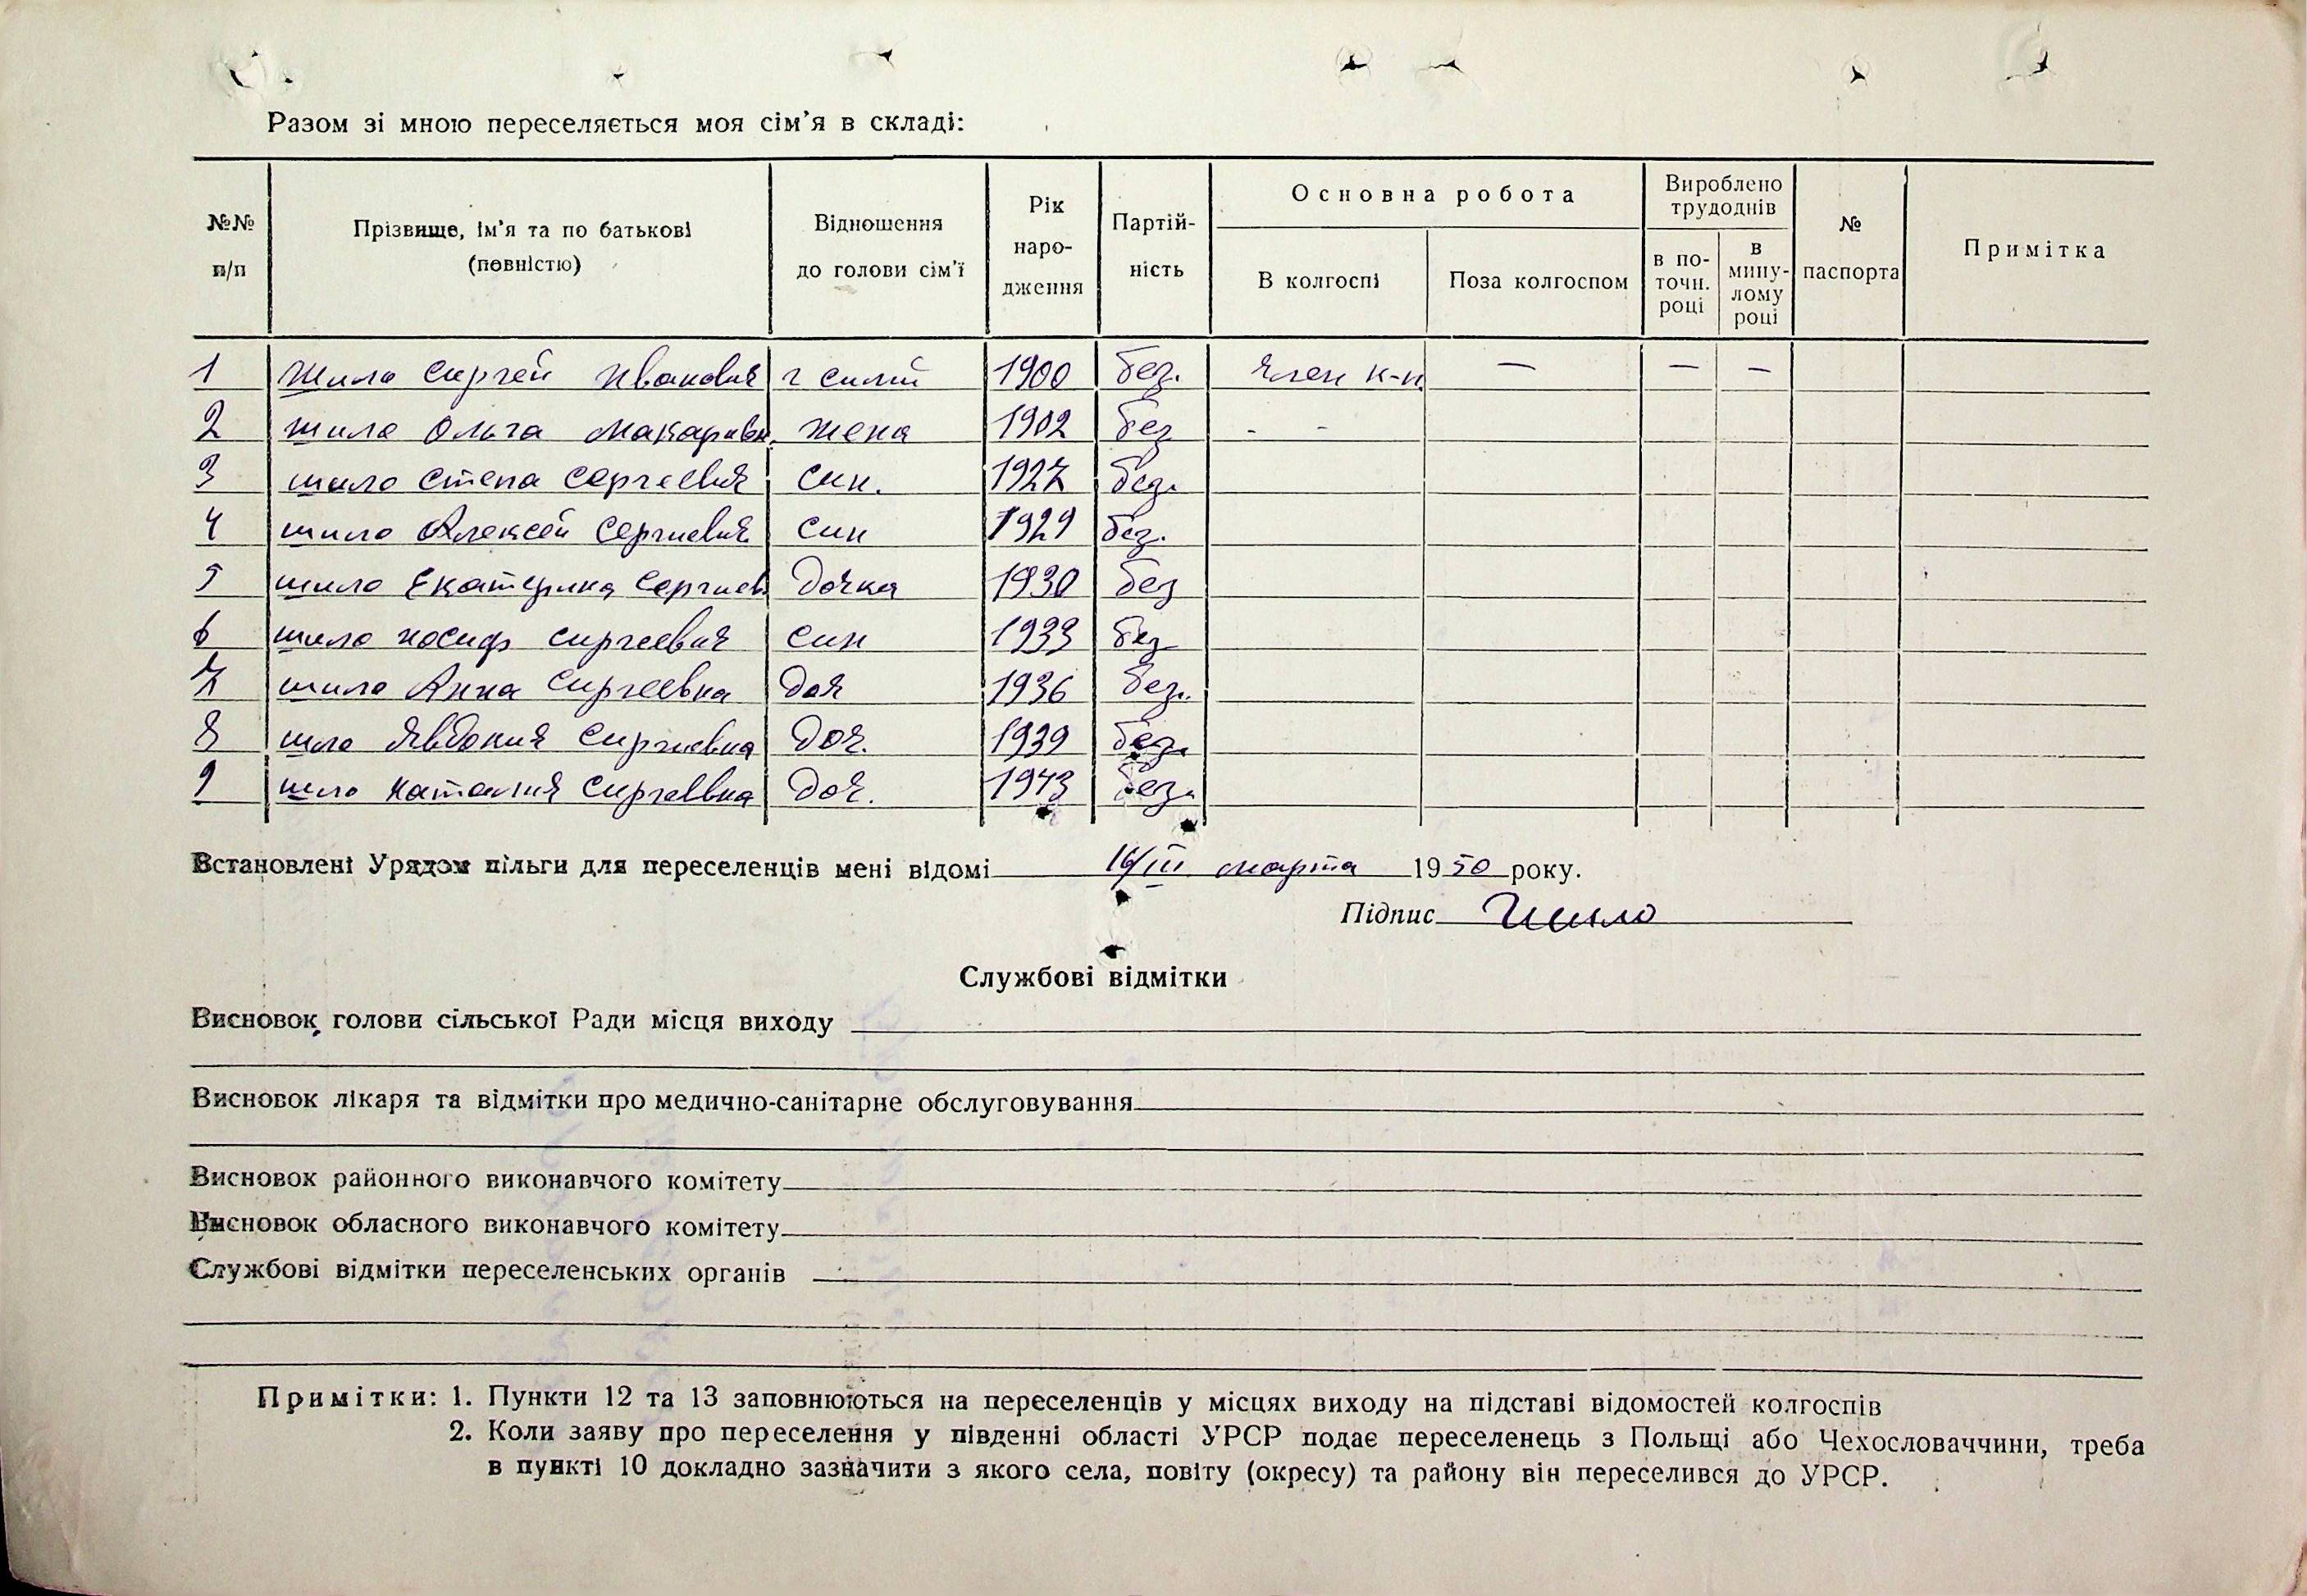 Разом зі мною переселяється моя сім'я в складі:
№№ п/п
Прізвище, ім'я та по батькові (повністю)
Відношення до голови сім'ї
Рік народження
Партійність
Основна робота
В колгоспі
Поза колгоспом
Вироблено трудоднів
в поточн. році
в минулому році
№ паспорта
Примітка
1 Шило Сиргей Иванович г симпи 1900 без. член к-п — — —
2 шило Ольга Макаривн. жена 1902 без - -
3 шило Степа Сергеевич син. 1927 без.
4 шило Алексей Сергиевич син 1929 без.
5 шило Екатерина Сергиев дочка 1930 без
6 шило иосиф сиргеевич син 1933 без
7 шило Анна Сиргеевна доч 1936 без.
8 шило Явдокия Сиргиевна доч. 1939 без.
9 шило наталия Сиргеевна доч. 1943 без.
Встановлені Урядом пільги для переселенців мені відомі 16/III марта 1950 року.
Підпис Шило
Службові відмітки
Висновок голови сільської Ради місця виходу
Висновок лікаря та відмітки про медично-санітарне обслуговування
Висновок районного виконавчого комітету
Висновок обласного виконавчого комітету
Службові відмітки переселенських органів
Примітки: 1. Пункти 12 та 13 заповнюються на переселенців у місцях виходу на підставі відомостей колгоспів
2. Коли заяву про переселення у південні області УРСР подає переселенець з Польщі або Чехословаччини, треба
в пункті 10 докладно зазначити з якого села, повіту (окресу) та району він переселився до УРСР.